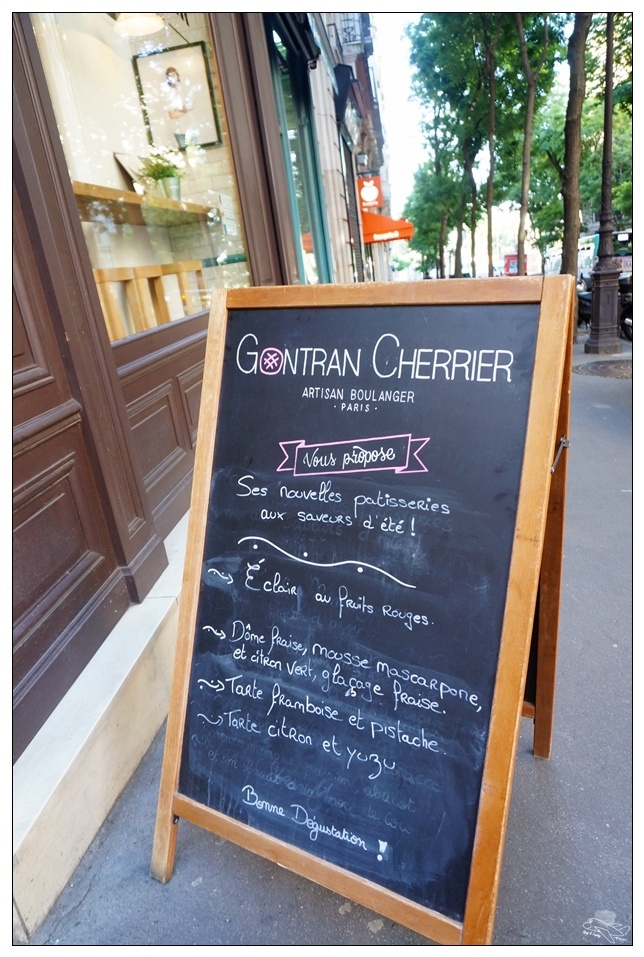 GONTRAN CHERRIER
ARTISAN BOULANGER
· PARIS ·
Vous propose
Ses nouvelles patisseries
aux saveurs d'été !
Éclair au fruits Rouges.
Dôme fraise, mousse mascarpone,
et citron vert, glaçage fraise.
Tarte framboise et pistache.
Tarte citron et yuzu
Bonne Dégustation !